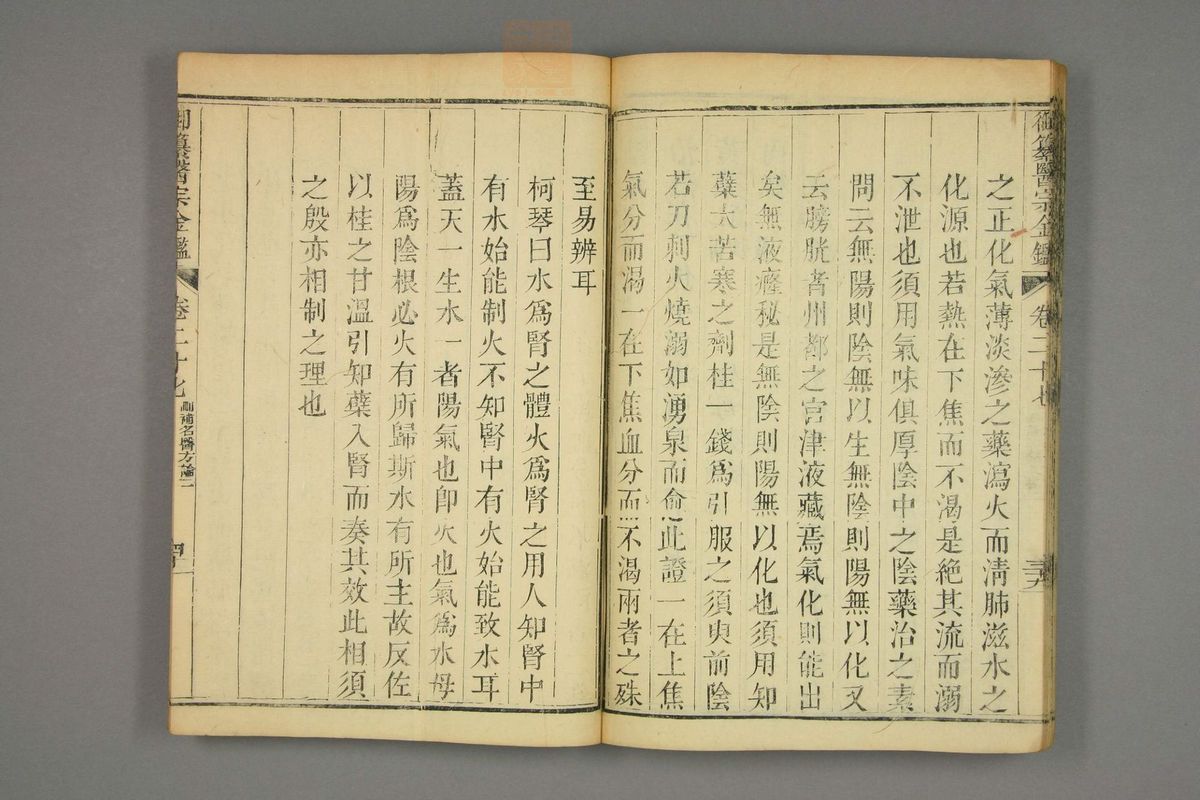 御纂醫宗金鑑 卷二十七
之正化氣薄淡滲之藥瀉火而淸肺滋水之
化源也若熱在下焦而不渴是絶其流而溺
不泄也須用氣味俱厚陰中之陰藥治之素
問云無陽則陰無以生無陰則陽無以化又
云膀胱者州都之官津液藏焉氣化則能出
矣無液癃秘是無陰則陽無以化也須用知
蘗大苦寒之劑桂一錢爲引服之須臾前陰
若刀刺火燒溺如湧泉而愈此證一在上焦
氣分而渴一在下焦血分而不渴兩者之殊
至易辨耳
柯琴曰水爲腎之體火爲腎之用人知腎中
有水始能制火不知腎中有火始能致水耳
蓋天一生水一者陽氣也卽火也氣爲水母
陽爲陰根必火有所歸斯水有所主故反佐
以桂之甘溫引知蘗入腎而奏其效此相須
之殷亦相制之理也
御纂醫宗金鑑 卷二十七 刪補名醫方論二